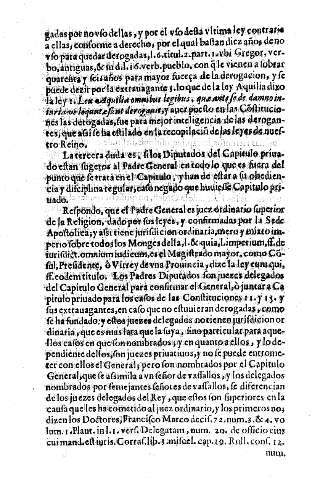 gadas por no vso dellas, y por el vso desta vltima ley contrario
a ellas, conforme a derecho, por el qual bastan diez años, de no
vso para quedar derogadas, l.6.titul.2.part.1.vbi Gregor. ver-
bo, antiguas, & in did. l.6. verb. pueblo, con q̃ le vienen a sobrar
quarenta y seis años para mayor fuerça de la derogacion, y se
puede dezir por la extrauagante 1. lo que de la ley Aquilia dizo
la ley 1. Lex Aquilia omnibus legibus, quæ ante se de damno in-
iuria derogauit, y auer puesto en las Cõstitucio-
nes las derogadas, fue para mejor inteligencia de las derogan-
tes, que assi se ha estilado en la recopilaciõ de las leyes de nues-
tro Reino.
La tercera duda es, si los Diputados del Capitulo priua-
do estan sugetos al Padre General en todo lo que es fuera del
punto que se trata en el Capitulo, y han de estar a su obedien-
cia y disciplina regular, caso negado que huuiesse Capitulo pri-
uado.
Respondo, que el Padre General es juez ordinario superior
de la Religion, dado por sus leyes, y confirmadas por la Sede
Apostolica, y assi tiene jurisdicion ordinaria, mero y mixto im-
perio sobre todos los Monges della, l. & quia, l. imperium, ff. de
iurisdict. omnium iudicum, es el Magistrado mayor, como Cõ-
sul, Presidente, ò Virrey de vna Prouincia, dize la ley cum qui,
ff. eodem titulo. Los Padres Diputados son juezes delegados
del Capitulo General para confirmar el General, ò juntar a Ca
pitulo priuado para los casos de las Constituciones 11. y 13. y
sus extrauagantes, en caso que no estuuieran derogadas, como
se ha fundado, y estos juezes delegados no tienen jurisdicion or
dinaria, que es mas lata que la suya, sino particular para aque-
llos casos en que son nombrados, y en quanto a ellos, y lo de-
pendiente dellos, son juezes priuatiuos, y no se puede entrome-
ter con ellos el General, pero son nombrados por el Capitulo
General, que se asimila a vn señor de vassallos, y los delegados
nombrados por semejantes señores de vassallos, se diferencian
de los juezes delegados del Rey, que estos son superiores en la
causa que les ha cometido al juez ordinario, y los primeros no,
dizen los Doctores, Francisco Marco decis. 72. num. 3. & 4. vo
lum. 1. Plaut. in l. 1. vers. Delegatam, num. 20. de officio eius
cui mand. est iuris. Corras. lib. 3. miscel. cap. 19. Roll. cons. 12.
num.